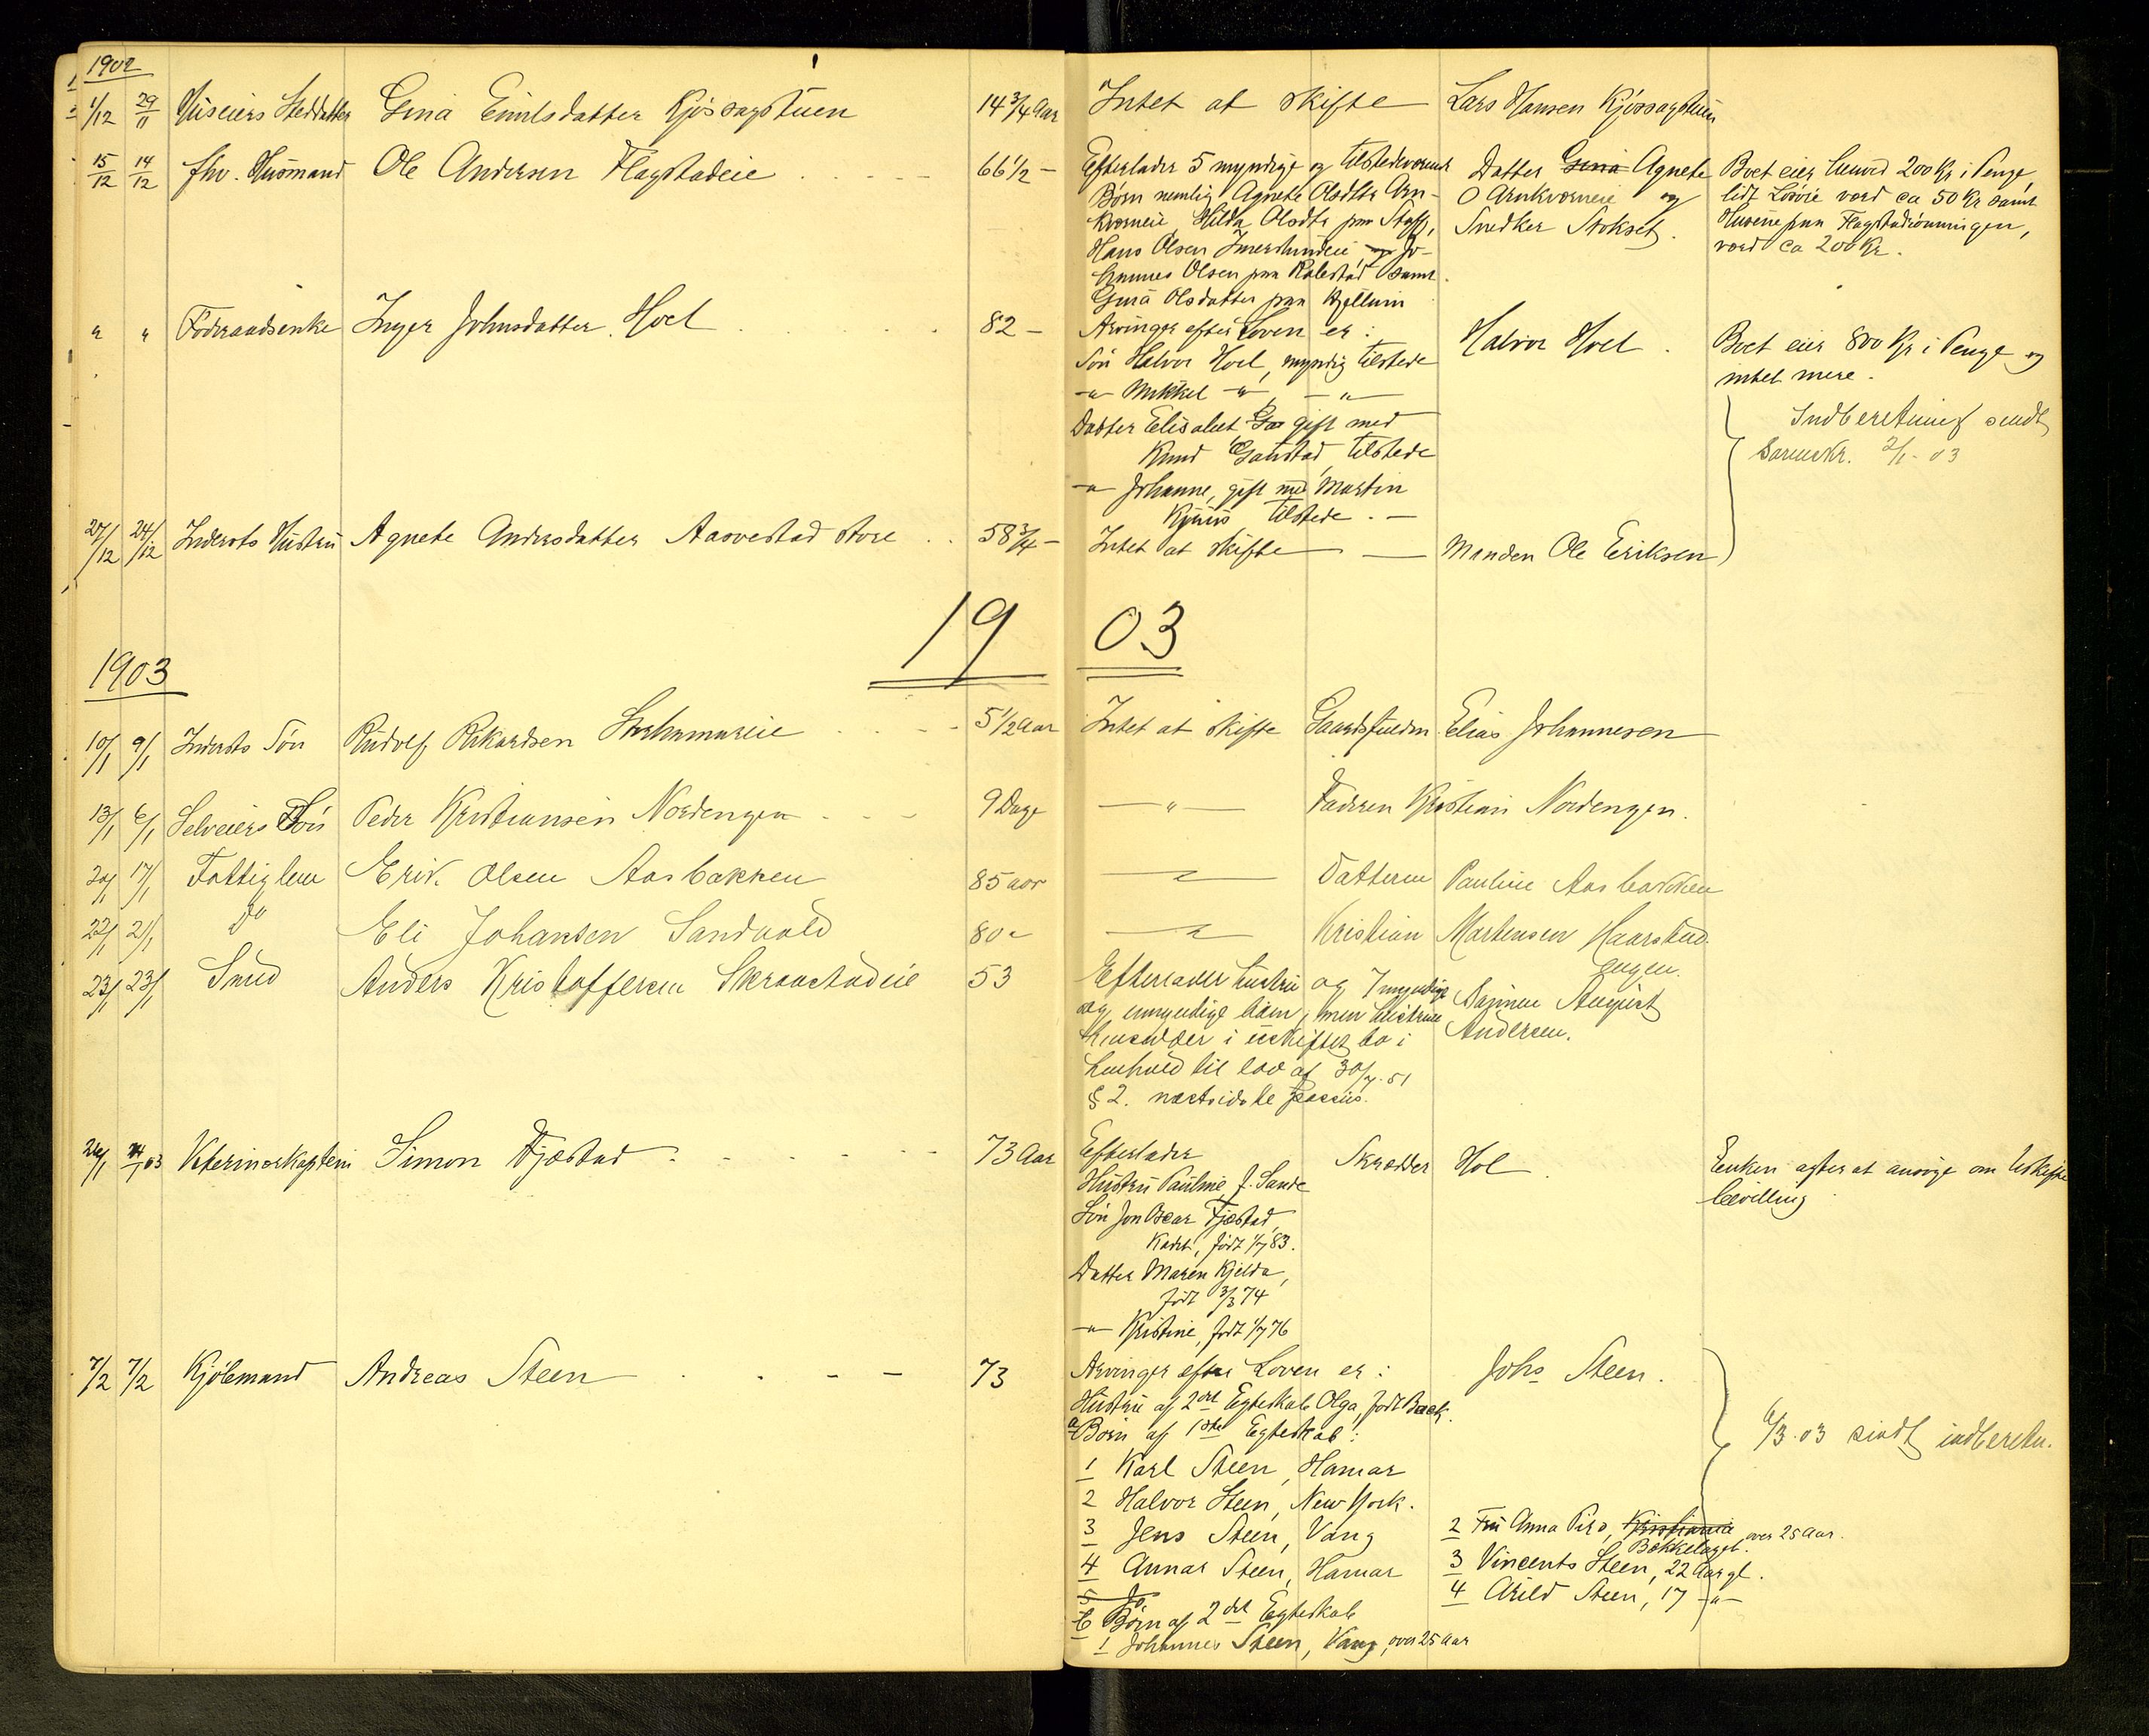 1902
1/12 29/11 Huseiers Steddatter Gina Emilsdatter Kjøssagstuen 14 3/4 Aar Intet at skifte Lars Hansen Kjøssagstuen
15/12 14/12 fhv. Husmand Ole Andersen Flagstadeie 66 1/2 —
Efterlader 5 myndige og tilstedeværende
Børn nemlig Agnete Olsdttr Arn-
kværneie, Hilda Olsdtr paa Staff,
Hans Olsen Imerslundeie, og Jo-
hannes Olsen paa Kolestad samt
Gina Olsdatter paa Kjellum
Datter Gina Agnete
O Arnkværneie og
Snedker Stokset.
Boet eier henved 200 Kr i Penge,
lidt Løsøre værd ca 50 Kr samt
Husene paa Flagstadrønningen,
værd ca 200 Kr.
" " Føderaadsenke Inger Johnsdatter Hoel 82 —
Arvinger efter Loven er:
Søn Halvor Hoel, myndig tilstede
—"— Mikkel —"— —"—
Datter Elisabet Gaa gift med
Knud Gaustad, tilstede
—"— Johanne, gift med Martin
Kjøus, tilstede. —
Halvor Hoel.
Boet eier 800 Kr i Penge og
intet mere.
Indberetning sendt
Sorenskr. 2/1-03
27/12 24/12 Indersts Hustru Agnete Andersdatter Aasvestad store 58 3/4 — Intet at skifte — Manden Ole Eriksen
19 03
1903
10/1 9/1 Indersts Søn Rudolf Rikardsen 5 1/2 Aar Intet at skifte Gaardsfuldm. Elias Johannesen
13/1 6/1 Selveiers Søn Peder Kristiansen Nordengen 9 Dage —"— Faderen Kristian Nordengen.
20/1 17/1 Fattiglem Erik Olsen Aasbakken 85 aar —"— Datteren Pauline Aasbakken
22/1 21/1 Do Eli Johansen Sandvold 80 " —"— Kristian Martensen Haarstad
engen.
23/1 23/1 Smed Anders Kristoffersen Skraastadeie 53
Efterlader hustru og 7 myndige
og umyndige børn, men hustruen
hensidder i uskiftet bo i
henhold til lov af 30/7-51
§ 2. næstsidste passus.
Sønnen August
Andersen.
26/1 24/1 03 Veterinærkaptein Simon Fjæstad 73 Aar
Efterlader
Hustru Pauline, f. Sande
Søn Jon Oscar Fjæstad,
Kadet, født 1/7 83.
Datter Maren Kjelda,
født 3/3 74
—"— Kristine, født 1/7 76
Skrædder Hol
Enken agter at ansøge om Uskifte
bevilling
7/2 7/2 Kjøbmand Andreas Steen 73
Arvinger efter Loven er:
Hustru af 2det Egteskab Olga, født Back.
a Børn af 1ste Egteskab:
1 Karl Steen, Hamar
2 Halvor Steen, New York.
3 Jens Steen, Vang
4 Annar Steen, Hamar
5 Jo
b Børn af 2det Egteskab
1 Johannes Steen, Vang, over 25 Aar
Johs Steen.
6/3-03 sendt indberetn.
2 Fru Anna Piro, Kristiania, over 25 Aar.
Bækkelaget.
3 Vincents Steen, 22 Aar gl.
4 Arild Steen, 17 —"—